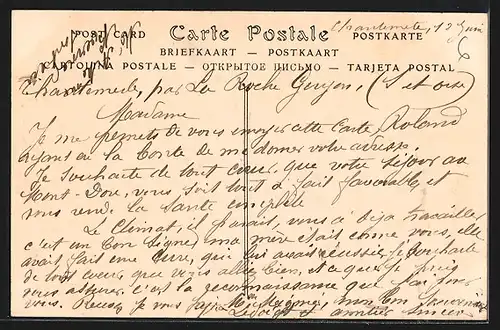 POST CARD Carte Postale POSTKARTE
Chantemesle, 12 Juin
BRIEFKAART — POSTKAART
CARTOLINA POSTALE — ОТКРЫТОЕ ПИСЬМО — TARJETA POSTAL
Chantemesle, par La Roche Guyon, (S et Oise)
Madame
Je me permets de vous envoyer cette Carte, Roland
ayant eu la bonté de me donner votre adresse.
Je souhaite de tout cœur que votre séjour au
Mont-Dore, vous soit tout à fait favorable, et
vous rende la santé complète
Le Climat, il parait, vous a déja travaillée
c'est un bon signe, ma mère était comme vous, elle
avait fait une cure, qui lui avait réussie. Je souhaite
de tout cœur que vous alliez bien, et ce que je puis
vous assurer, c'est la reconnaissance que j'ai pour
vous. Recevez je vous prie Madame, mon bon souvenir
et amitiés sincères